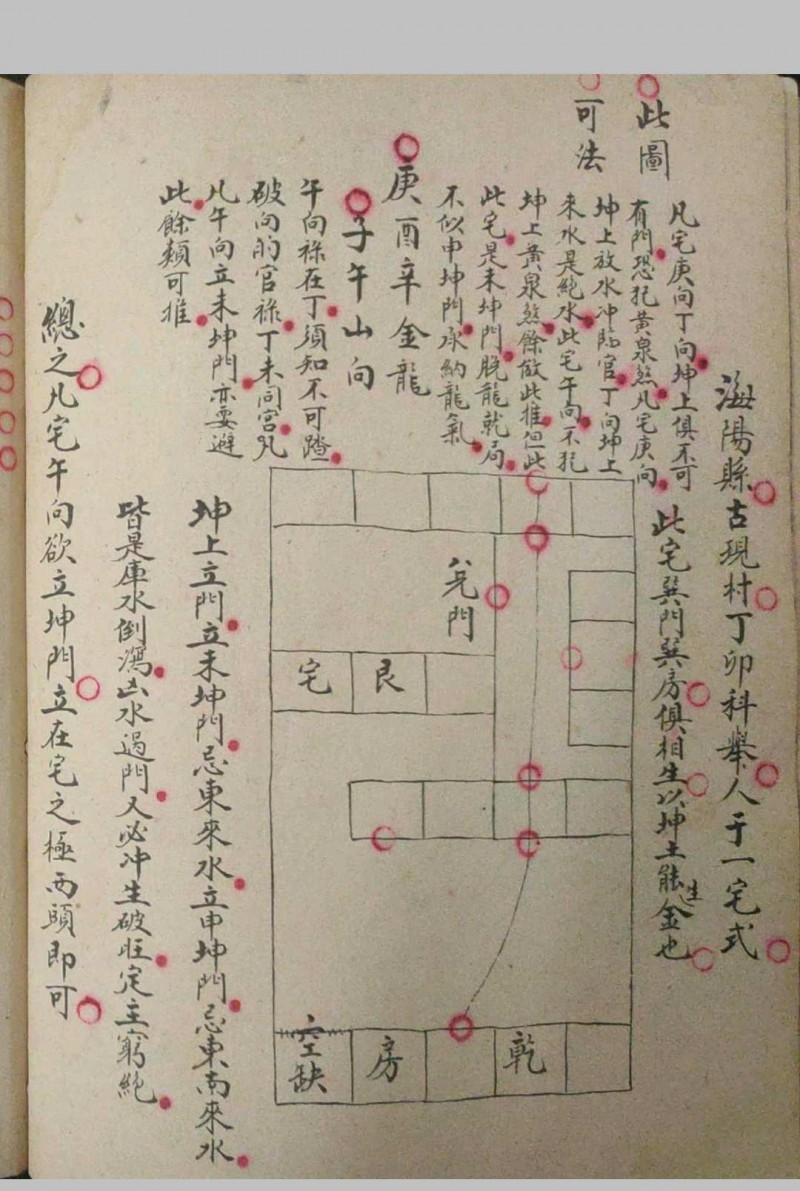 海陽縣古現村丁卯科舉人于一宅式
此圖
可法
凡宅庚向丁向坤上俱不可
有門恐犯黃泉煞凡宅庚向
坤上放水冲臨官丁向坤上
來水是純水此宅午向不犯
坤上黃泉煞餘倣此推但此
此宅是未坤門脫龍就局
不似申坤門承納龍氣
此宅巽門巽房俱相生以坤土能生金也
庚酉辛金龍
子午山向
午向祿在丁須知不可蹬
破向的官祿丁未同宮凡
凡午向立未坤門亦要避
此餘類可推
兌門
宅
艮
空缺
房
乾
坤上立門立未坤門忌東來水立申坤門忌東南來水
皆是庫水倒瀉凶水過門又必冲生破旺定主窮絕
總之凡宅午向欲立坤門立在宅之極西頭即可